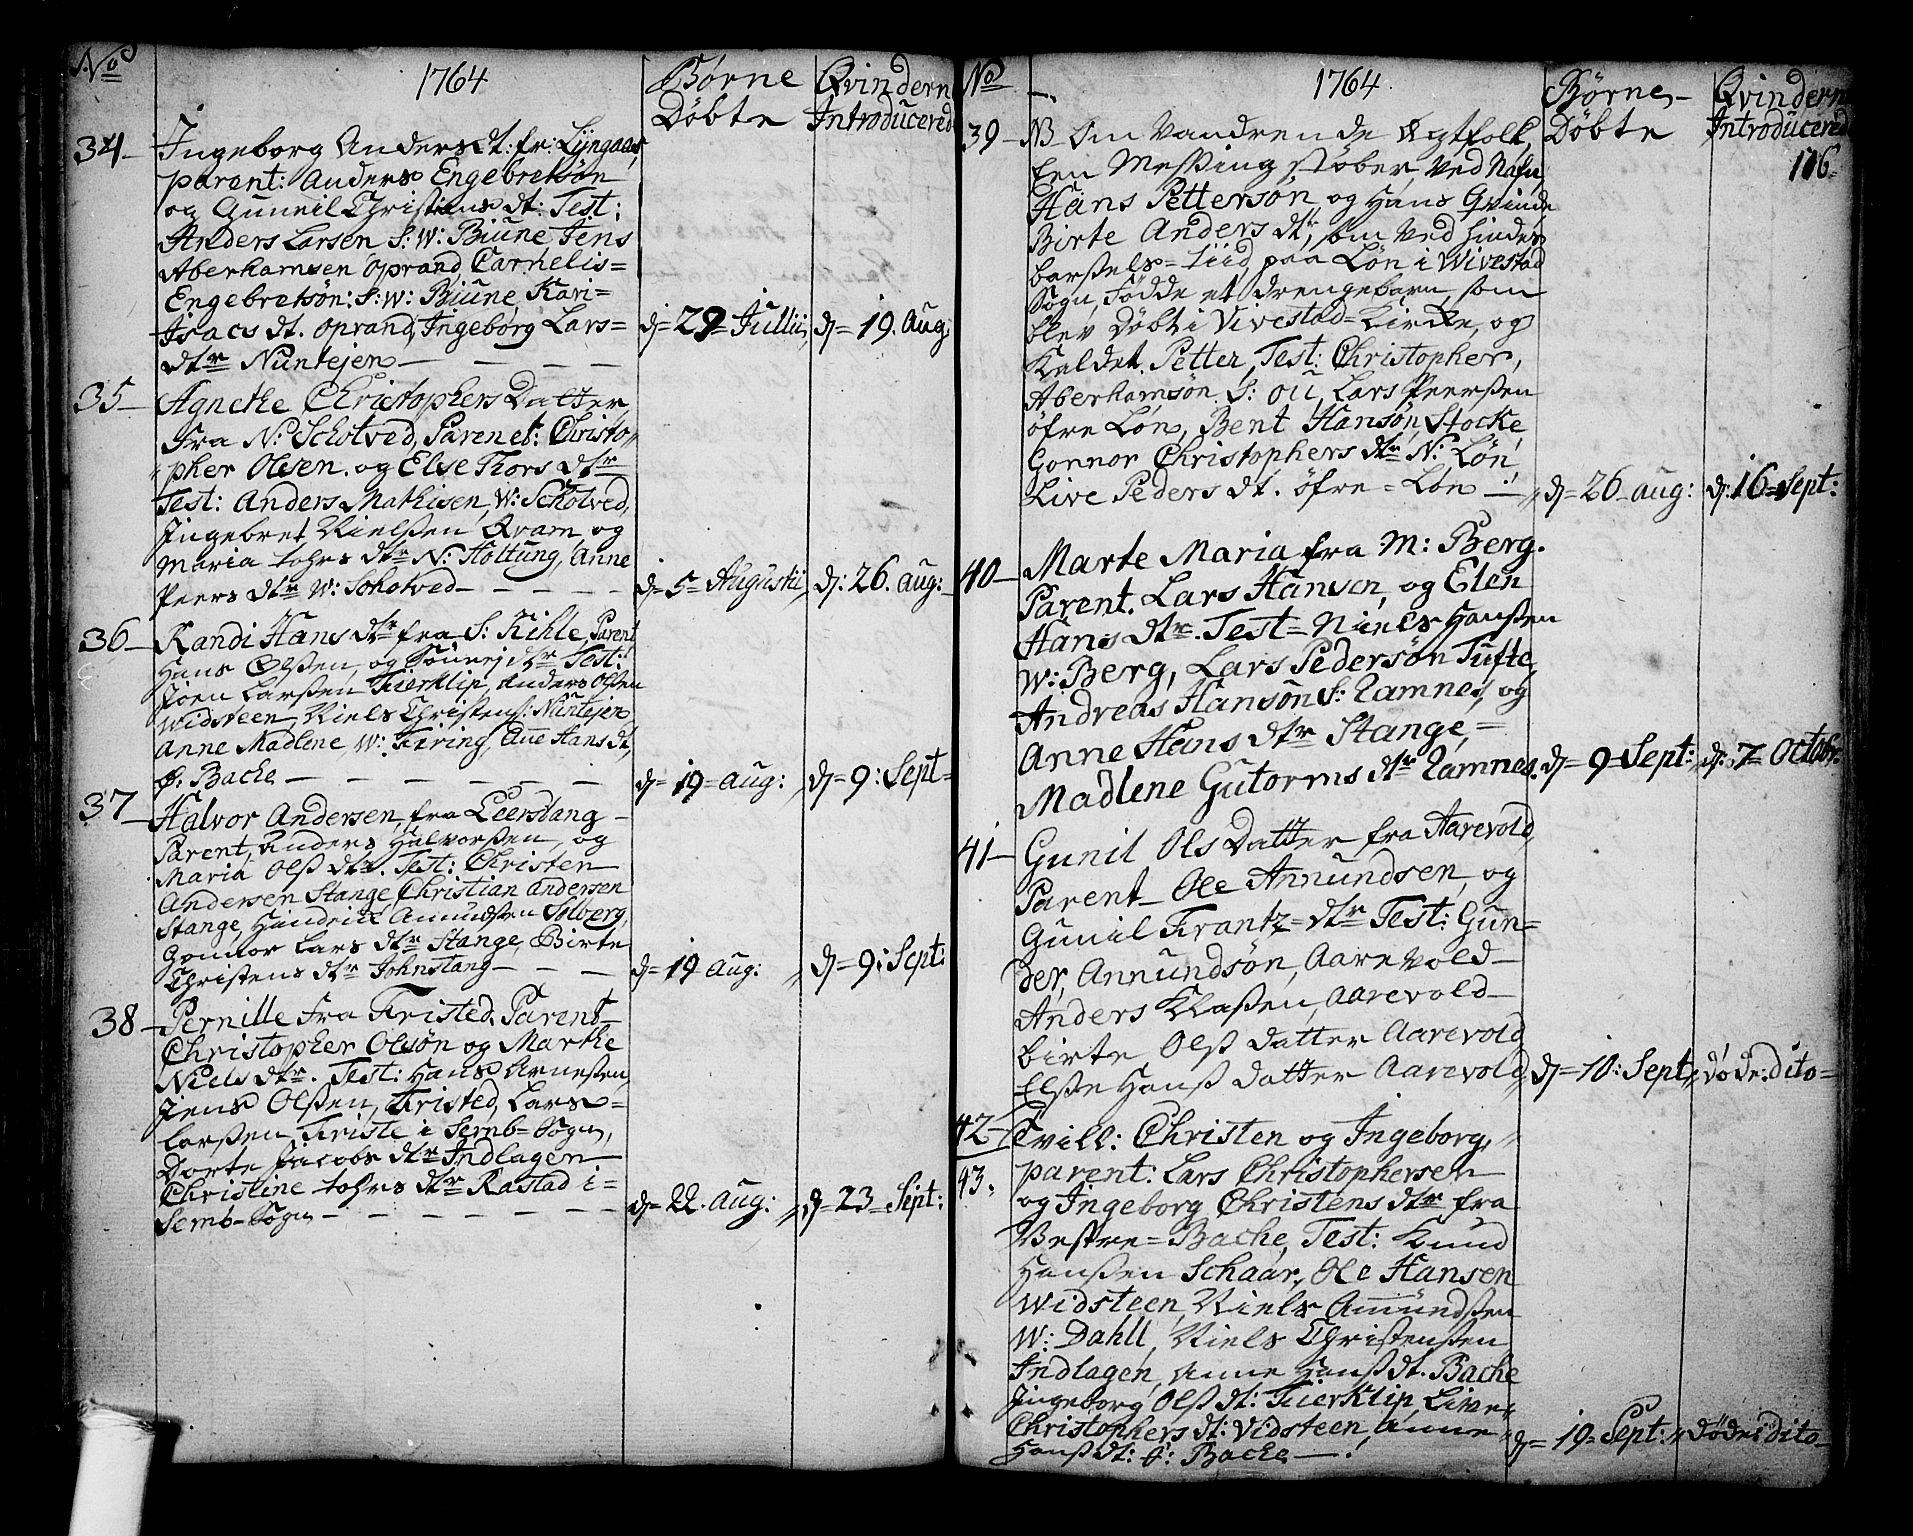 No
1764
Børne
Døbte
Qvinderne
Introducered
34 Ingeborg Anders dt: fr: Lÿngaas,
parent: Anders Engebretsøn
og Gunnil Christens dt: Test:
Anders Larsen S: W: Biüne Jens
Aberhamsen Oprand, Carnelis=
Engebretsøn: S: W: Biüne Kari=
Isacs dt. Oprand, Ingeborg Lars=
dtr Nüntejen
d= 29= Jullii, d= 19. Aug
35 Agnethe Christophers Datter,
fra N: Schotved, Parenet: Christo
pher Olsen. og Else Thors dtr
Test: Anders Mathisen, W: Schotved,
Ingebret Nielsen Qvam, og
Maria tohrs dtr N: Holtung, Anne
Peers dtr W: Schotved
d= 5= Augusti, d: 26. aug:
36 Randi Hans dtr fra S: Kihle, Parent
Hans Olsen, og dtr Test:
Joen Larsen Fierklip, Anders Olsen
Widsteen, Niels Christens: Nüntejen
Anne Madlene W: Firing, Añe Hans dt,
Ø. Bache
d= 19= aug: d= 9: Sept=
37 Halvor Andersen, fra Leerstang
Parent, Anders Halvorsen, og
Maria Olss dtr. Test: Christen
Andersen Stange, Christian Andersen
Stange, Hindrick Amundsen Solberg,
Gonnor Lars dtr Stange, Birte
Christens dtr Johnstang
d= 19 aug: d= 9: Sept:
38 Pernille fra Fristed, Parent
Christopher Olsøn og Marthe
Niels dtr. Test: Hans Arnesen,
Jens Olsen, Fristed, Lars=
Larsen Friste i Semb= Sogn,
Dorte Jacobs dtr Indlagen
Christine tohrs dtr Rastad i=
Semb= Sogn
d= 22. aug: d= 23= Sept:
No
1764.
Børne
Døbte
Qvinderne
Introducered
116
39 NB Om Vandrende Ægtfolk,
Een Messing støber, ved Nafn
Hans Pettersøn, og Hans Qvinde
Birte Anders dtr, som ved hindes
barsels= tiid paa Løn i Wivestad
Sogn, fødde et drengebarn, som
blev døbt i Vivestad= Kircke, og
Kaldet. Petter, Test: Christopher,
Aberhamsøn S: Oü, Lars Peersen
øfre Løn, Bent Hansøn, Stocke
Gonnor Christophers dtr N: Løn,
Live Peders dt. øfre= Løn
d= 26 aug: d: 16= Sept:
40 Marte Maria fra M: Berg.
Parent. Lars Hansen, og Elen
Hans dtr. Test= Niels Hansen
W: Berg, Lars Pedersøn Tufte,
Andreas Hansøn S: Ramnes, og
Anne Hans dtr Stange,=
Madlene Gutorms dtr Ramnes.
d= 9= Sept: d: 7= Octobr:
41 Gunil Ols Datter fra Aarevold,
Parent Ole Annundsen, og
Gunil Frantz= dtr Test: Gun=
der, Annundsøn, Aarevold
Anders Klasen, Aarevold
Birte Olss datter Aarevold
Elsse Hanss datter Aarevold
d= 10: Sept, døde: dito
42 Tvill: Christen og Ingeborg,
43. parent: Lars Christophersen
og Ingeborg Christens dtr fra
Vestre= Bache, Test: Knud
Hansen Schaar, Ole Hansen
Widsteen, Niels Amündsen
W: Dahll, Niels Christensen
Indlagen, Anne Hanss dt. Bache
Ingeborg Olss dt: Fierklip, Live
Christophers dt: Vidsteen, Anne
Hanss dt: Ø: Bache
d= 19= Sept: døde: dito